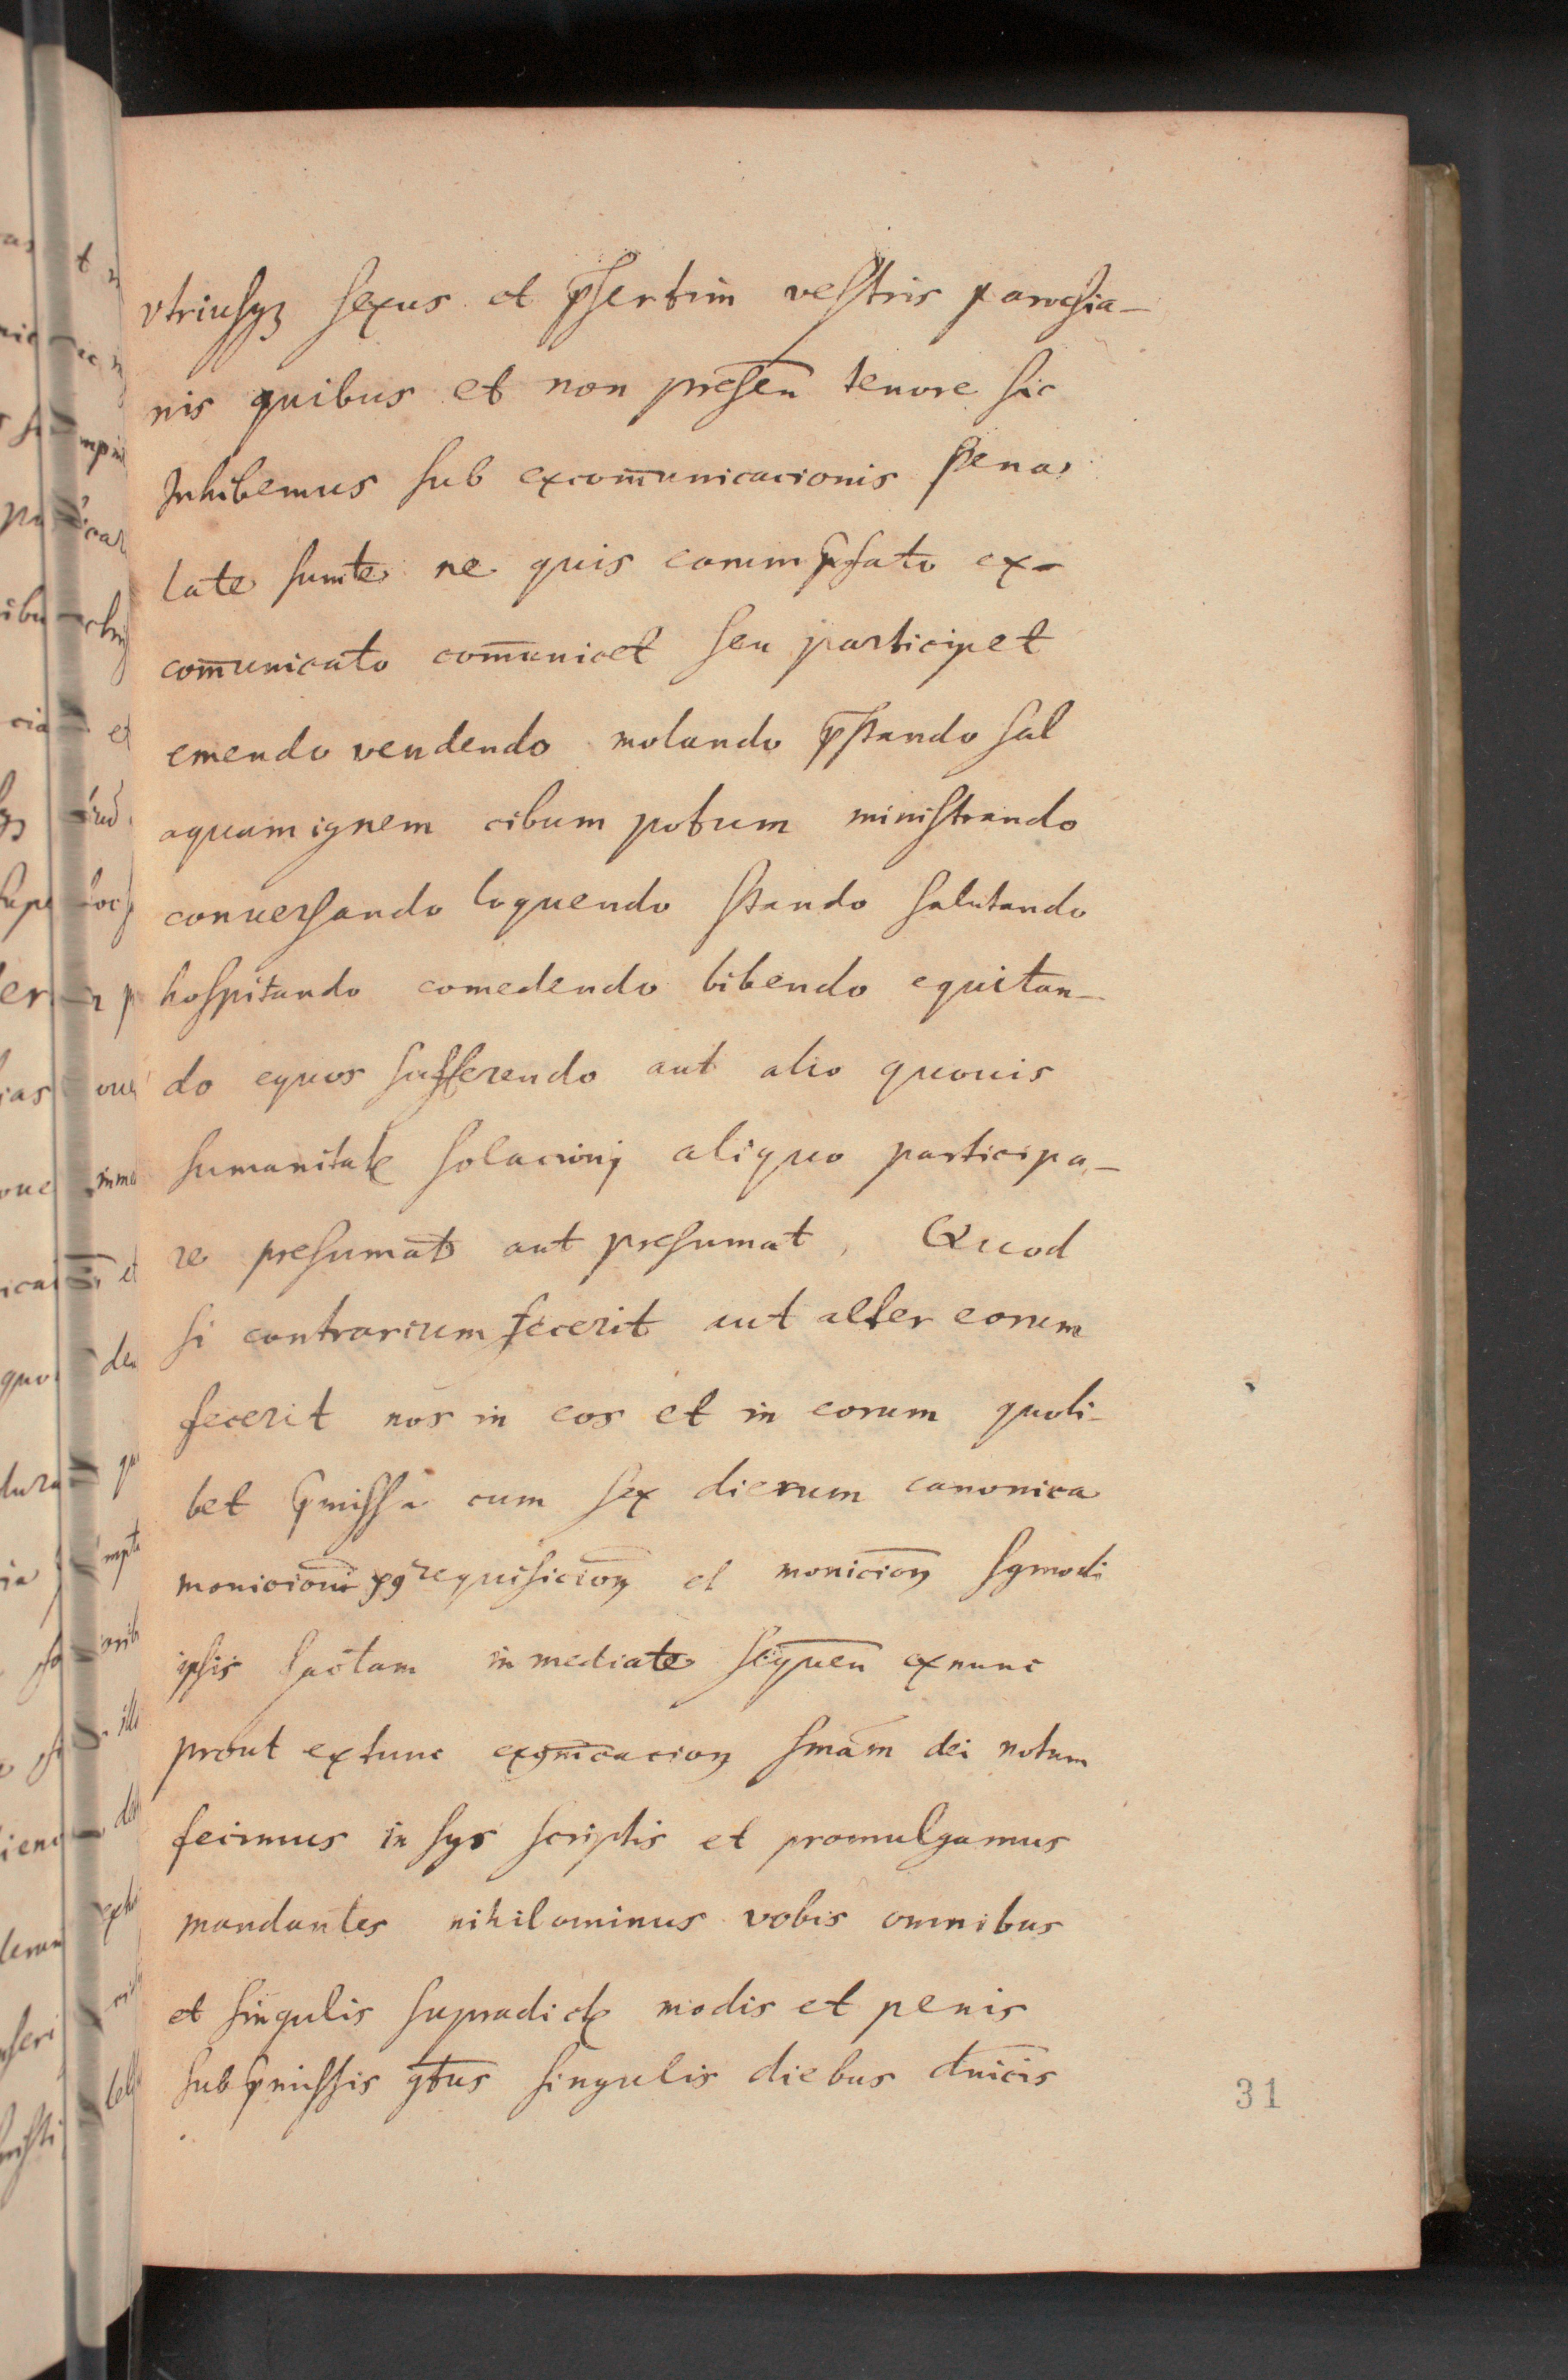 vtriusqz sexus et p̄sertim vestris parochia-
nis quibus et non presen̄ tenore sic
Inhibemus sub excom̄unicacionis pena
late snnte ne quis eorum p̄fato ex-
com̄unicato com̄unicet seu participet
emendo vendendo molando p̄stando sal
aquam ignem cibum potum ministrando
conuersando loquendo stando salutando
hospitando comedendo bibendo equitan-
do equos sufferendo aut alio quouis
humanitat solacionj aliquo participa-
re presumat aut presumat. Quod
si contrarium fecerit aut alter eorum
fecerit nos in eos et in eorum quoli-
bet p̄missa cum sex dierum canonica
monicioni requisicion̄ et monicion̄ hgmodi
ipsis factam inmediate sequen̄ exnunc
prout extunc sm̄am dei notum
fecimus in hys scriptis et promulgamus
mandantes nihilominus vobis omnibus
et singulis supradict modis et penis
sub p̄missis qtus singulis diebus dnicis
31